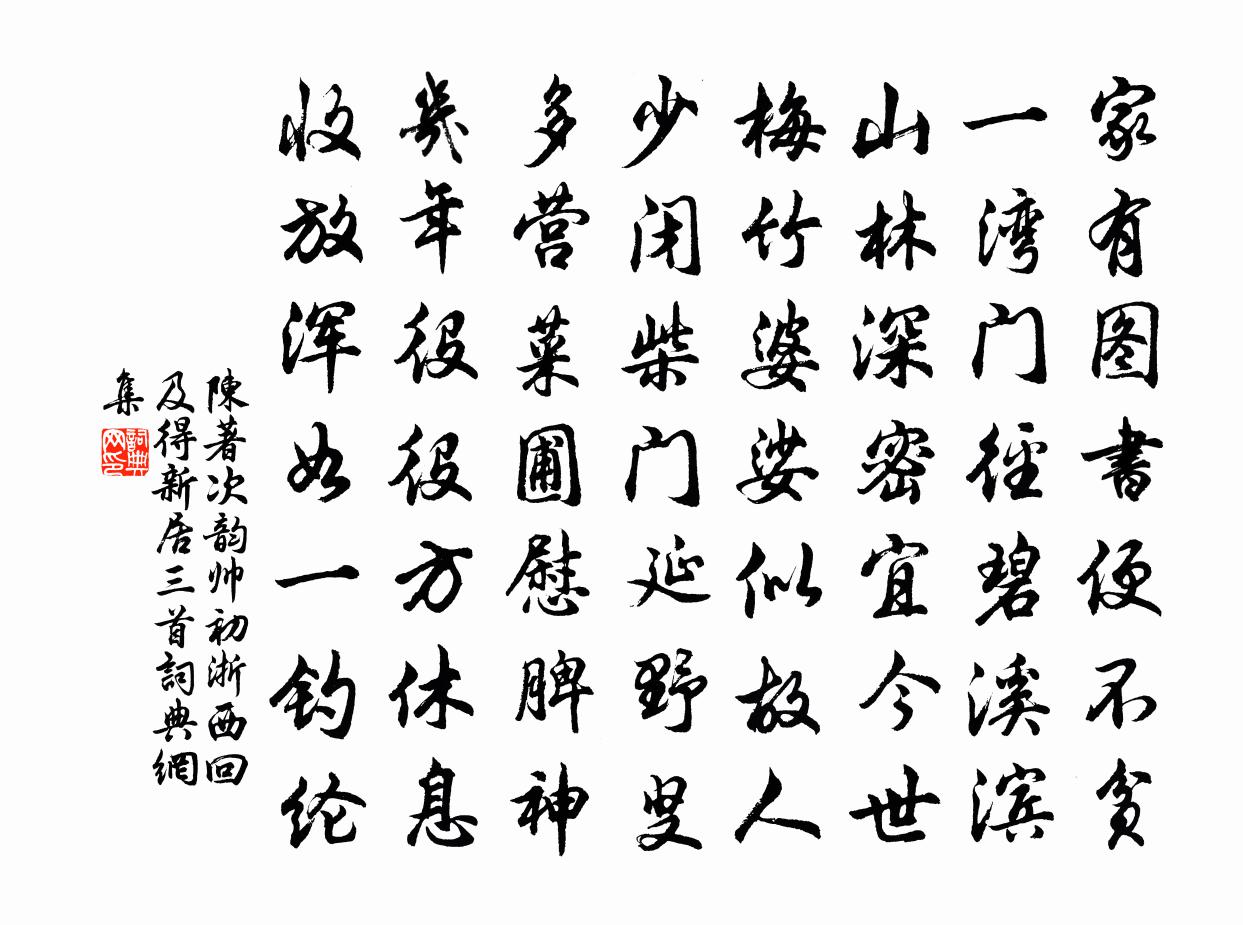 家有图書便不貧
一湾门径碧溪滨
山林深密宜今世
梅竹婆娑似故人
少闭柴门延野叟
多营菜圃慰脾神
幾年役役方休息
收放浑如一钓纶
陳著次韵帅初浙西回
及得新居三首詞典網
集
詞典网印